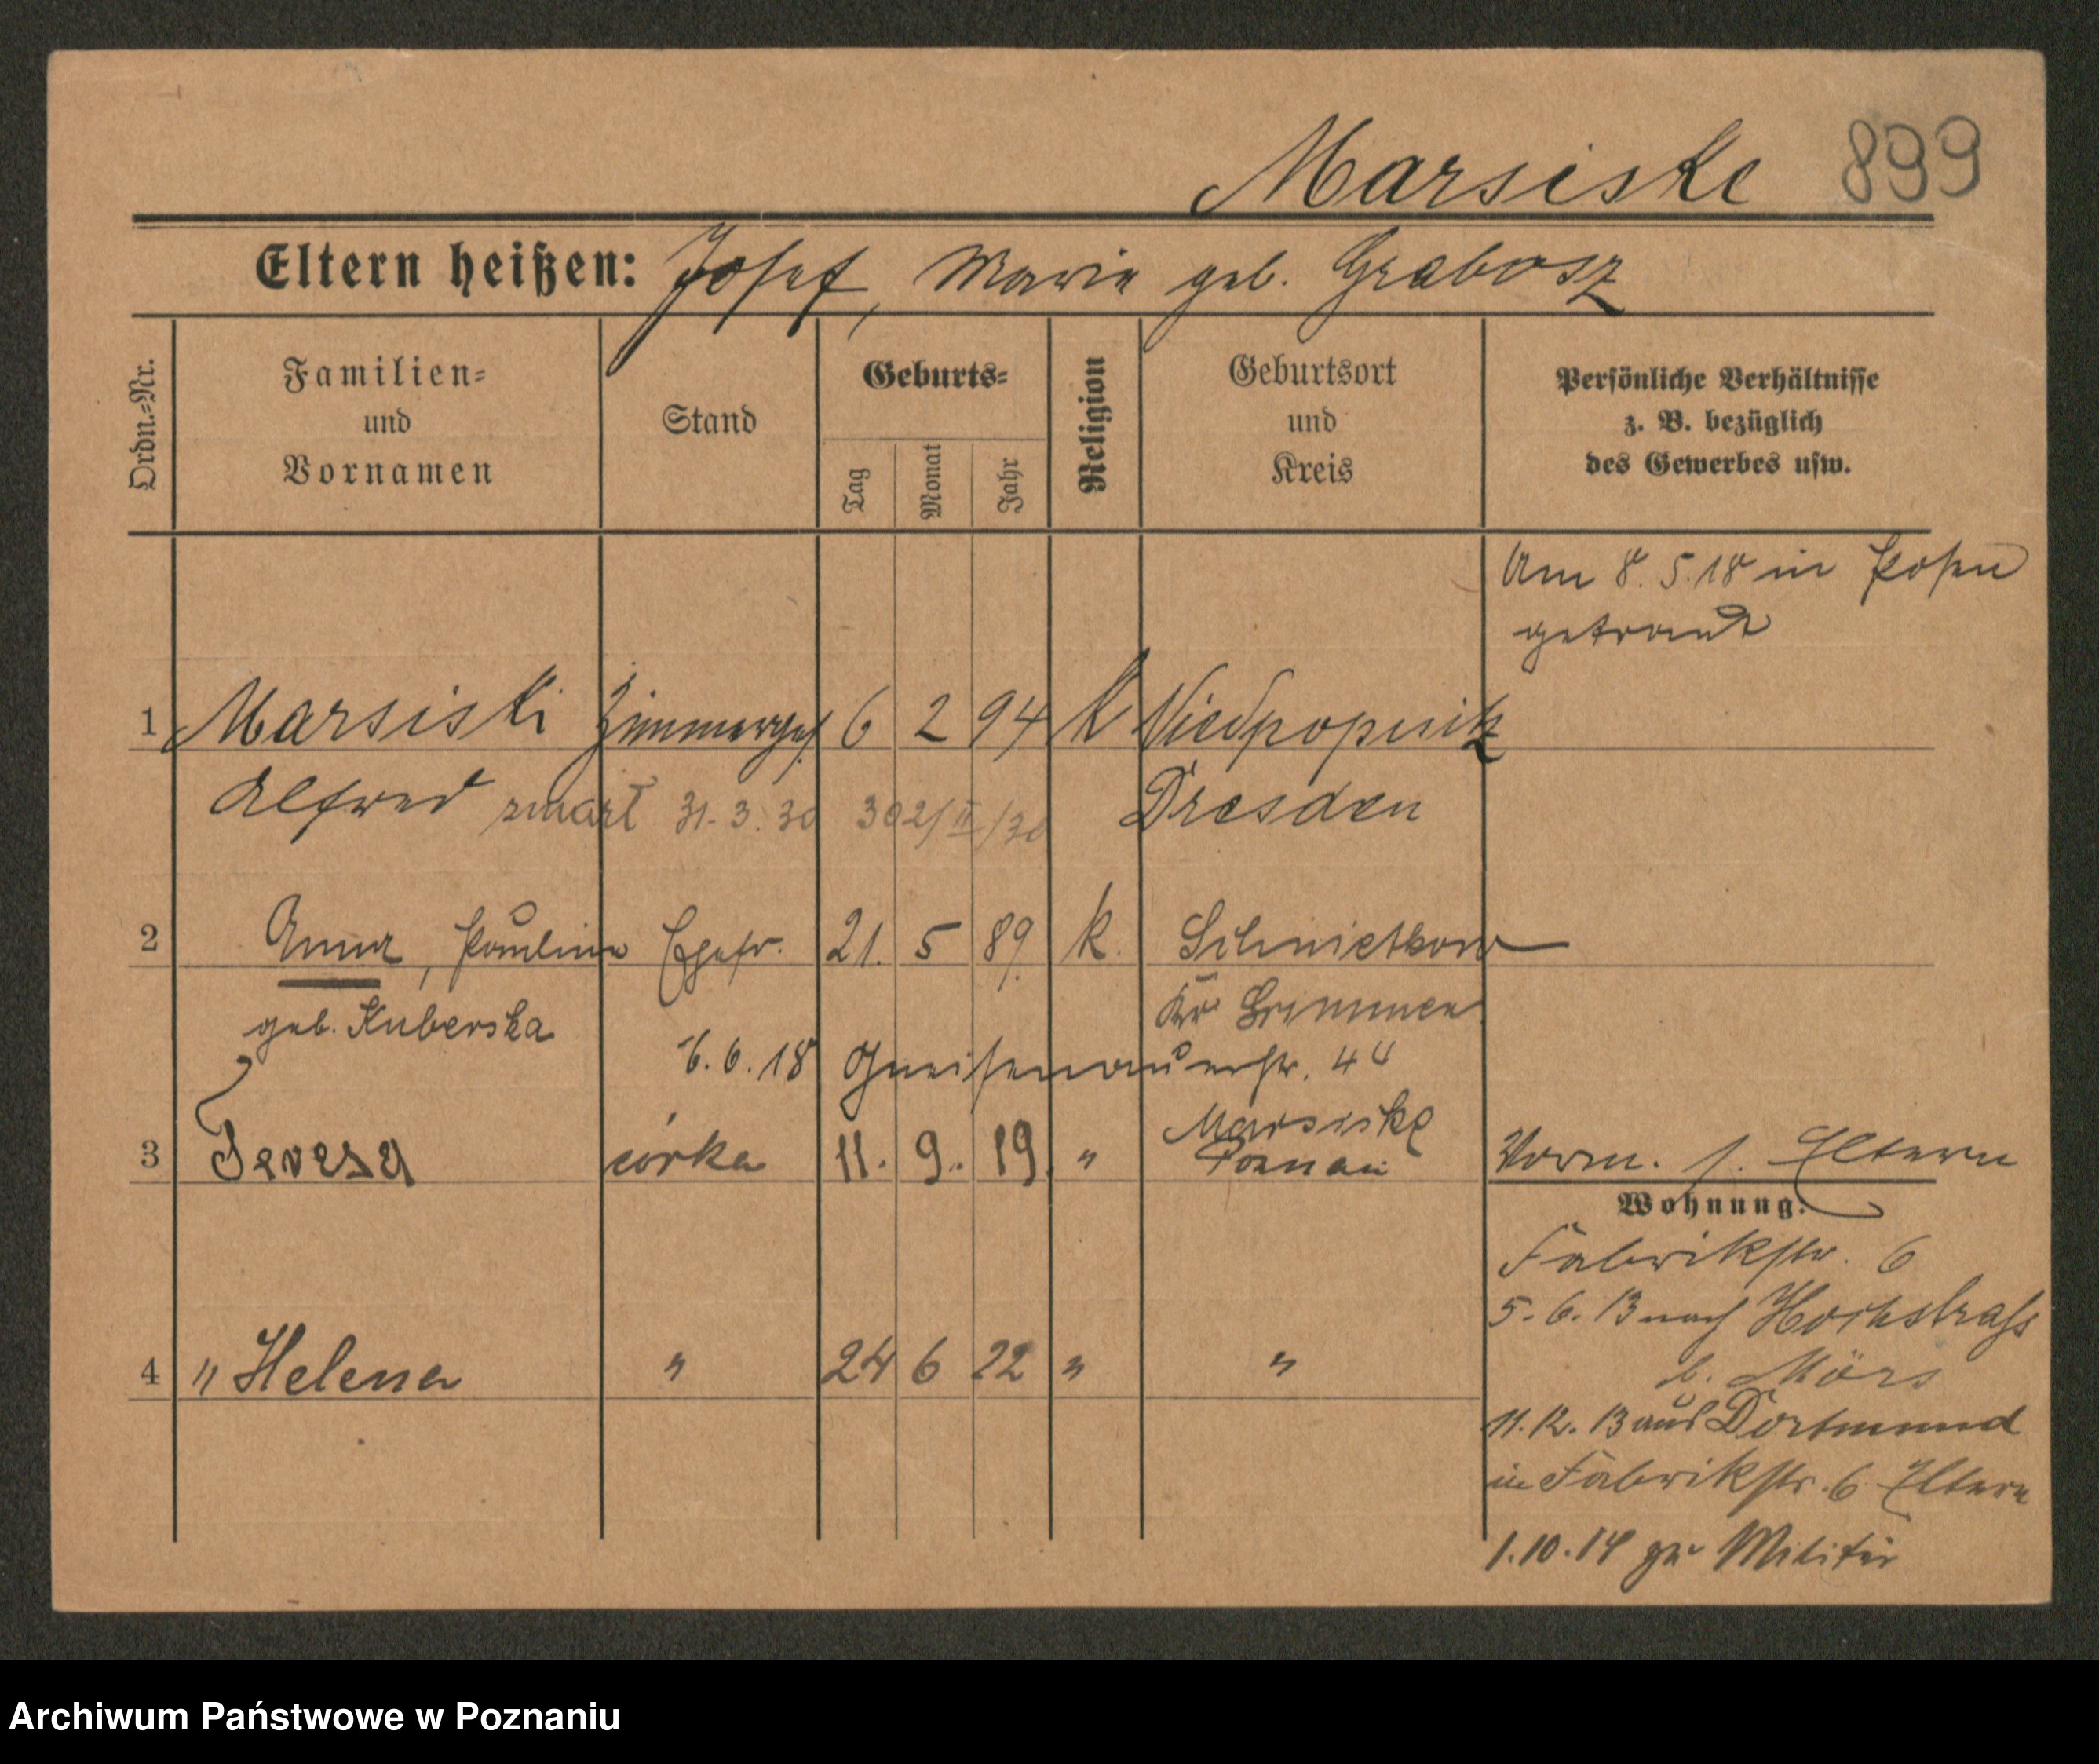 Marsiske 899
Eltern heißen: Josef, Maria geb. Grabosz
Ordn.-Nr.
Familien-
und
Vornamen
Stand
Geburts-
Tag
Monat
Jahr
Religion
Geburtsort
und
Kreis
Persönliche Verhältnisse
z. B. bezüglich
des Gewerbes usw.
Am 8.5.18 in Posen
getraut
1 Marsiski Zimmerges. 6 2 94 K
Alfred zmarł 31.3.30 302/II/30 Dresden
2 Anna, Paulina Ehefr. 21. 5 89. k. Schmietkow
geb. Kuberska Kr Grimmen
6.6.18 Gneisenauerstr. 44
Marsiske
3 Teresa córka 11. 9. 19. " Poznań
Vorm. s. Eltern
Wohnung:
Fabrikstr. 6
5.6.13 nach Hochstraß
b. Mörs
4 " Helena " 24 6 22 " "
11.12.13 aus Dortmund
in Fabrikstr. 6 Eltern
1.10.14 zu Militär
Archiwum Państwowe w Poznaniu